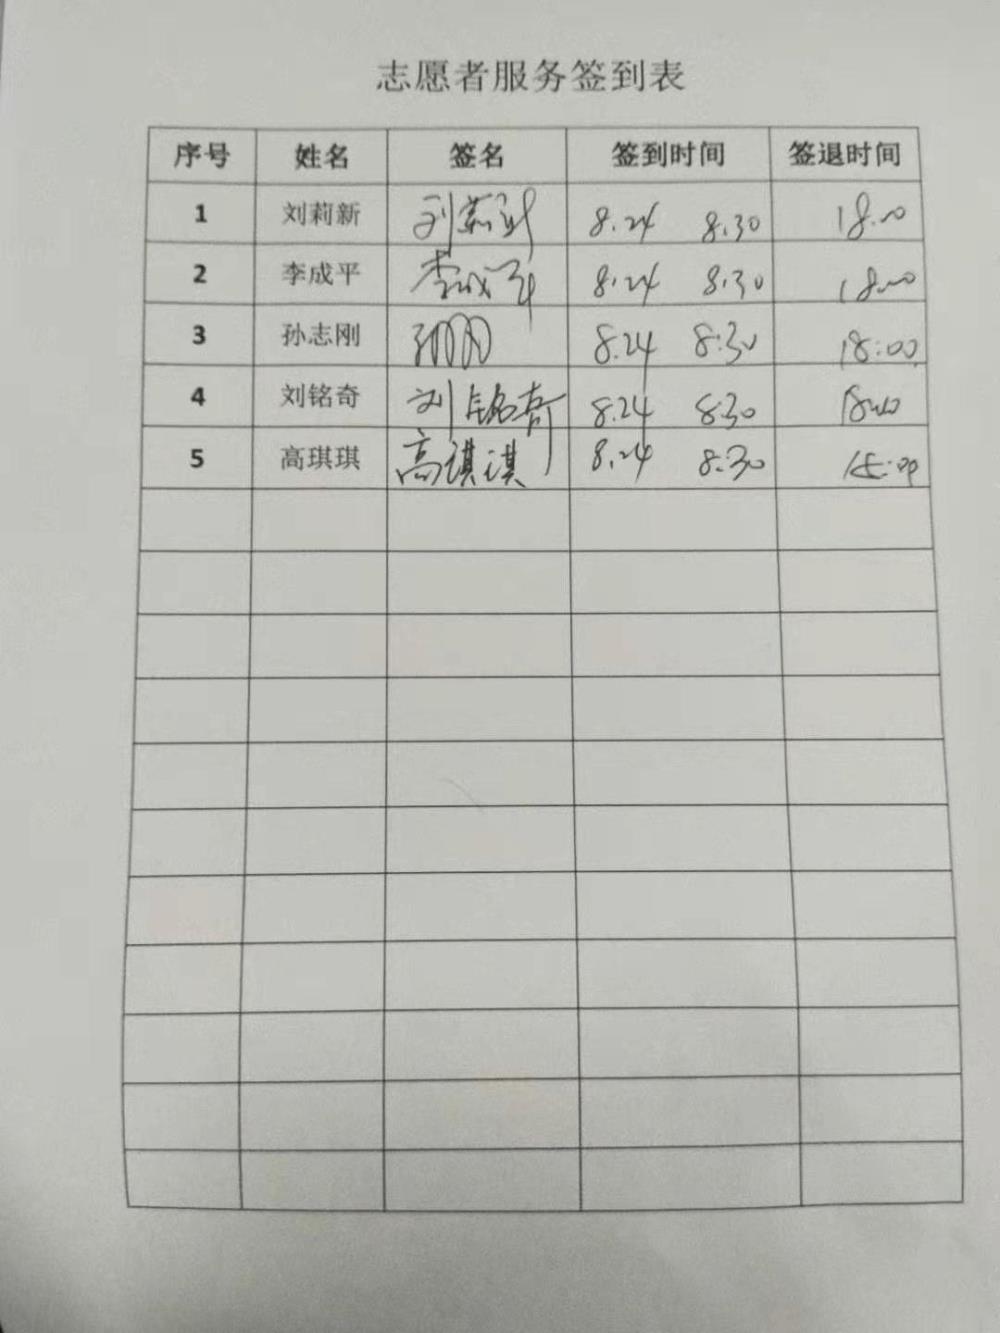 志愿者服务签到表
序号 姓名 签名 签到时间 签退时间
1 刘莉新 刘莉新 8.24 8.30 18.00
2 李成平 李成平 8.24 8.30 18.00
3 孙志刚 8.24 8:30 18:00
4 刘铭奇 刘铭奇 8.24 8:30 18:00
5 高琪琪 高琪琪 8.24 8:30